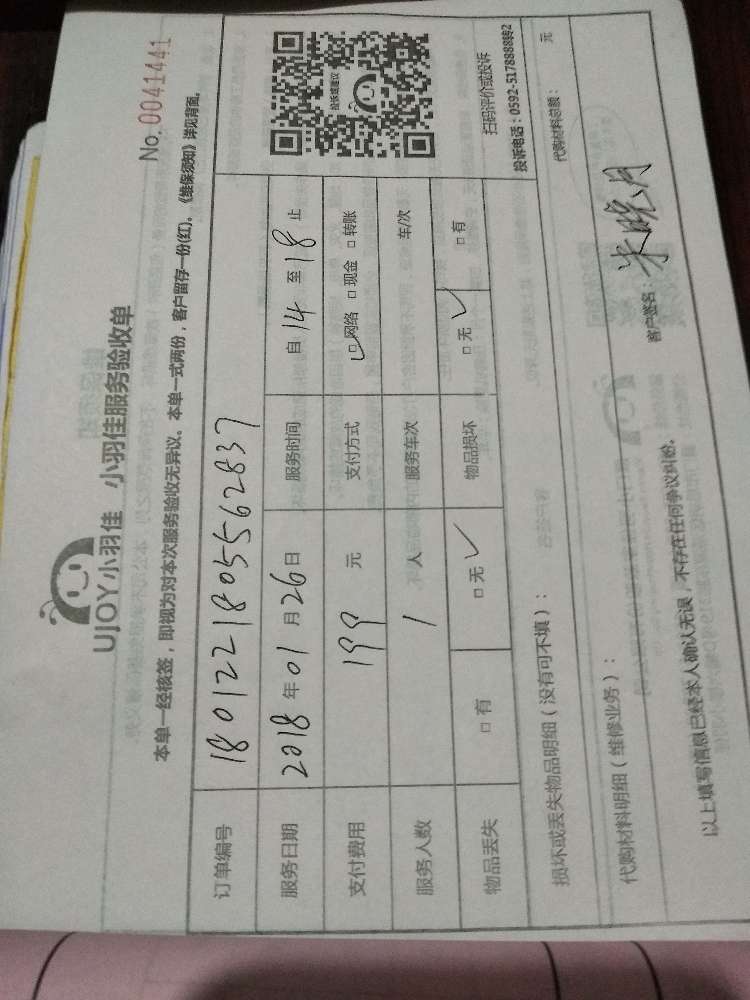 UJOY小羽佳 小羽佳服务验收单
No. 0041441
本单一经核签，即视为对本次服务验收无异议。本单一式两份，客户留存一份(红)。《维保须知》详见背面。
订单编号 1801221805562837
投诉或建议
服务日期 2018 年 01 月 26 日 服务时间 自 14 至 18 止
支付费用 199 元 支付方式 □ 网络 □ 现金 □ 转账
服务人数 1 人 服务车次 车/次
物品丢失 □ 有 □ 无 ✓ 物品损坏 □ 无 ✓ □ 有
扫码评价或投诉
投诉电话：0592-5178888转2
损坏或丢失物品明细（没有可不填）：
代购材料明细（维修业务）： 代购材料总额： 元
以上填写信息已经本人确认无误，不存在任何争议纠纷。 客户签名：朱晓月